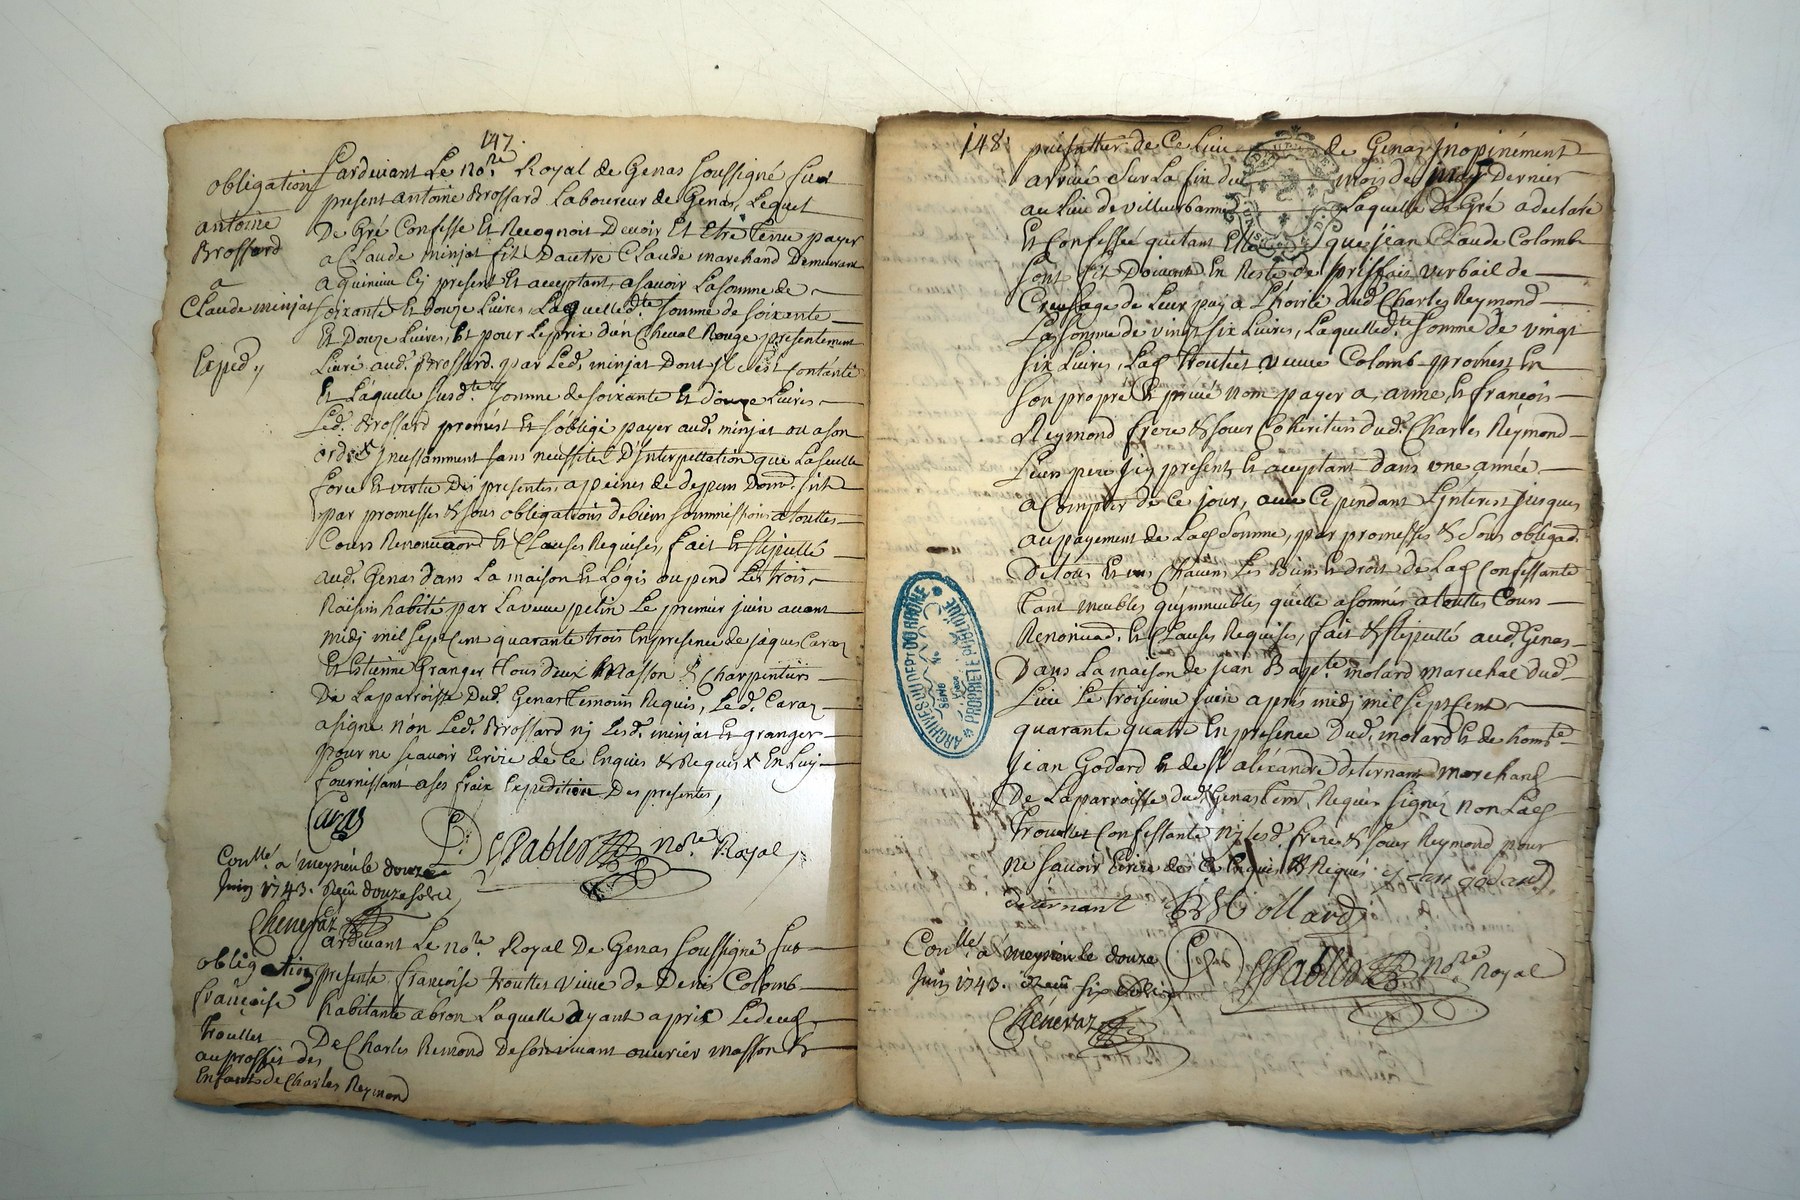 147.
obligation
antoine
Brossard
a
Claude minjat
Expéd.
Pardevant Le no.re Royal de Genas soussigné fut
present antoine Brossard Laboureur de Genas, Lequel
De Gré Confesse Et Recognoit Devoir Et Etre tenu payer
a Claude minjat fil Dautre Claude marchand Demeurant
a present Et acceptant, asavoir Lasomme de
soixante Et Douze Livres, Laquelle d.te somme de soixante
Et Douze Livres, Est pour Le prix dun Cheval Rouge presentement
Livré aud. Brossard par Led. minjat Dont il s'est Contanté
Et Laquelle susd.te somme de soixante Et douze Livres
Led. Brossard promest Et s'oblige payer aud. minjat ou a son
ordre Incessamment sans necessité D'Interpellation que La seulle
force Et vertu Des presentes, a peines de depens Dom.
par promesses & sous obligations de biens soummissions a toutes
Cours Renonciaons Et Clauses Requises, fait Et stipullé
aud. Genas dans La maison Et Logis ou pend Les trois
Raisins habité par La veuve pelin Le premier juin avant
midi mil sept Cent quarante trois En presence de jaques Caraz
Et Estienne Granger tous deux Masson & Charpentiers
De Laparroisse Dud. Genas temoins Requis, Led. Caraz
a signé non Led. Brossard nj Lesd. minjat Et granger
pour ne scavoir Ecrire de ce Enquis & Requis & En Luy
fournissant a ses fraix Expedition Des presentes,
Caraz
Pablez no.re Royal
Con.llé a meyzieu le douze
Juin 1743. Reçu douze sols
Cheneraz
obligation
françoise
trouttet
au proffit des
Enfants de Charles Reymond
Pardevant Le no.re Royal De Genas soussigné fut
presente françoise trouttet veuve de Denis Colomb
habitante a bron Laquelle ayant apris Le deces
De Charles Remond De son vivant ouvrier masson &
148.
de Ce Lieu de Genas Inopinément
arrivé sur La fin du mois de may Dernier
au Lieu de villeurbanne Laquelle De Gré a declaré
Et Confessé que tant Elle que jean Claude Colomb
son fil Doivent En Reste de prisfait verbail de
Creusage de Leur puy a L'hoirie dud. Charles Reymond
La somme de vingt six Livres, Laquelle d.te somme de vingt
six Livres, Lad. trouttet veuve Colomb promest En
son propre Et privé nom payer a anne, Et françois
Reymond frere & sœur Coheritiers dud. Charles Reymond
Leur pere present, Et acceptant dans une année
a Compter de Ce jour, avec Cependant L'Interest jusques
au payement de Lad. somme, par promesses & sous obligad.
De tous Et uns Chacuns Les Biens Et droit de Lad. Confessante
tant meubles qu'jmmeubles quelle a soumis a touttes Cours
Renonciad. Et Clauses Requises, fait & stipullé aud. Genas
Dans La maison de jean Bapt.te molard marechal dud.
Lieu Le troisieme juin aprés midj mil sept Cent
quarante quatre En presence Dud. molard Et de hon.te
Jean Godard Et de s.r aléxandre deternant marchand
De Laparroisse dud. Genas tem. Requis signés non Lad.
trouttet Confessante nj Lesd. frere & sœur Reymond pour
ne savoir Ecrire de Ce Enquis & Requis jean godard
deternant B Mollard
Con.llé a meyzieu le douze
Juin 1743. Reçu six sols
Pablez no.re Royal
Cheneraz
ARCHIVES DU DEPT DU RHÔNE
PROPRIETE PUBLIQUE